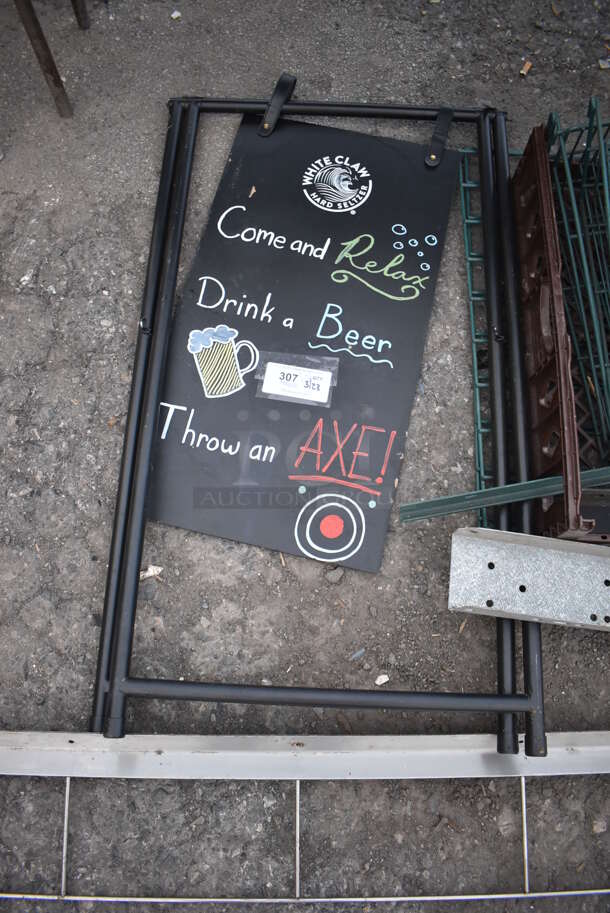 WHITE CLAW
HARD SELTZER
Come and Relax
Drink a Beer
307
3/23
Throw an AXE!
AUCTION GROUP